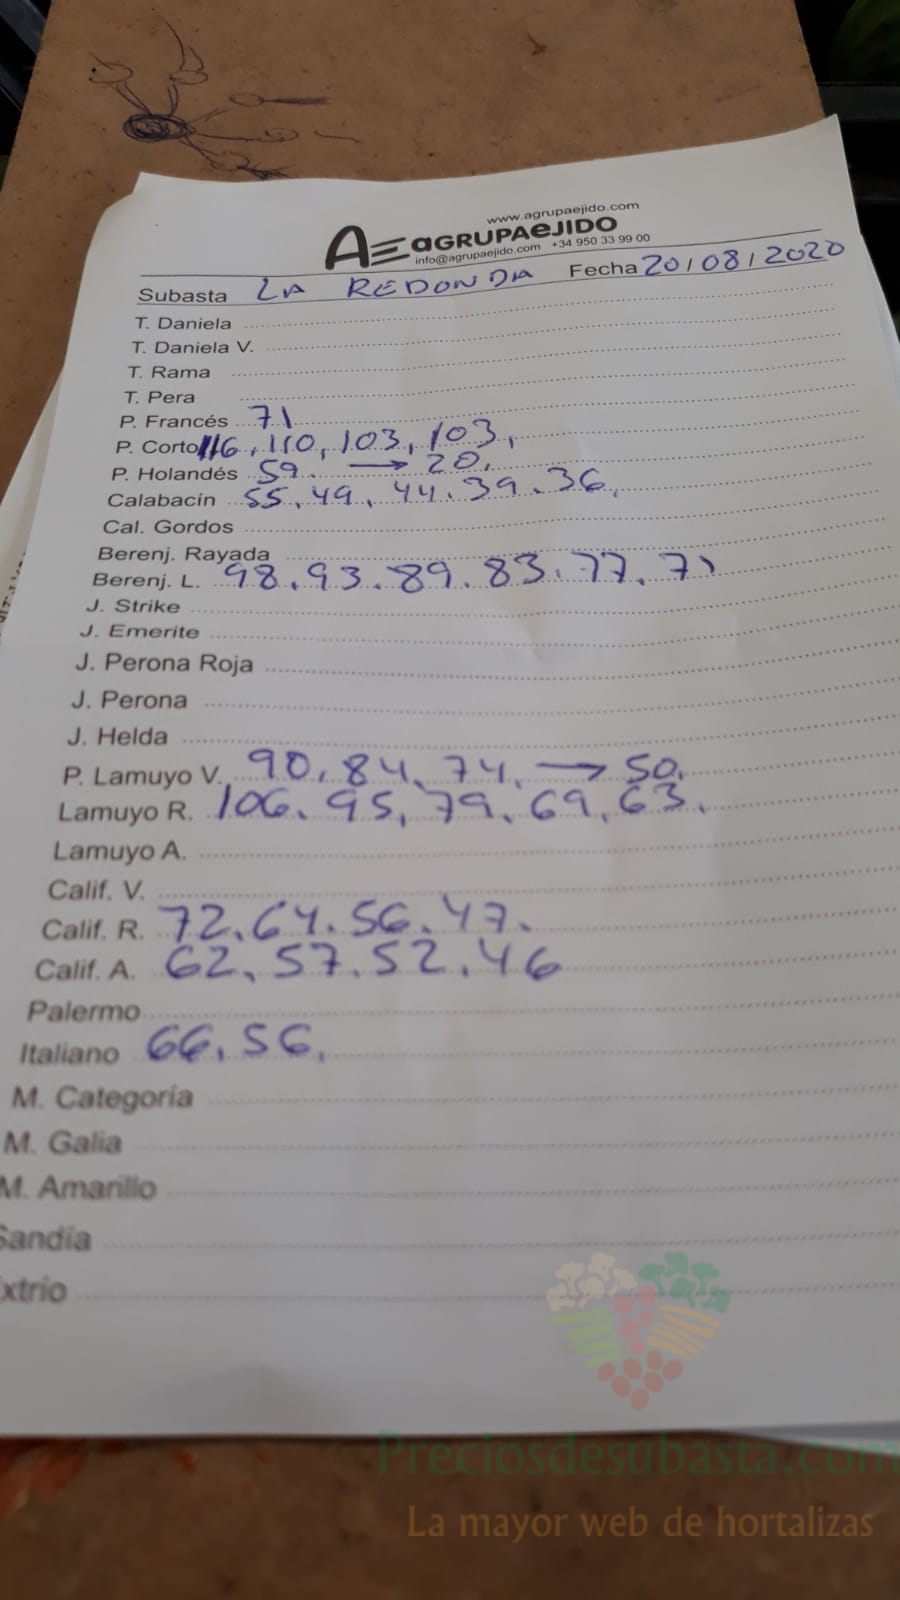 www.agrupaejido.com
AE aGRUPAeJIDO
info@agrupaejido.com +34 950 33 99 00
Subasta LA REDONDA Fecha 20/08/2020
T. Daniela
T. Daniela V.
T. Rama
T. Pera
P. Francés 71
P. Corto 116, 110, 103, 103,
P. Holandés 59. → 20.
Calabacín 55, 49, 44. 39. 36.
Cal. Gordos
Berenj. Rayada
Berenj. L. 98. 93. 89. 83. 77. 71
J. Strike
J. Emerite
J. Perona Roja
J. Perona
J. Helda
P. Lamuyo V. 90, 84, 74, → 50.
Lamuyo R. 106. 95, 79. 69, 63.
Lamuyo A.
Calif. V.
Calif. R. 72. 64. 56. 47.
Calif. A. 62, 57. 52. 46
Palermo
Italiano 66. 56.
M. Categoría
M. Galia
M. Amarillo
Sandía
xtrio
Preciosdesubasta.com
La mayor web de hortalizas